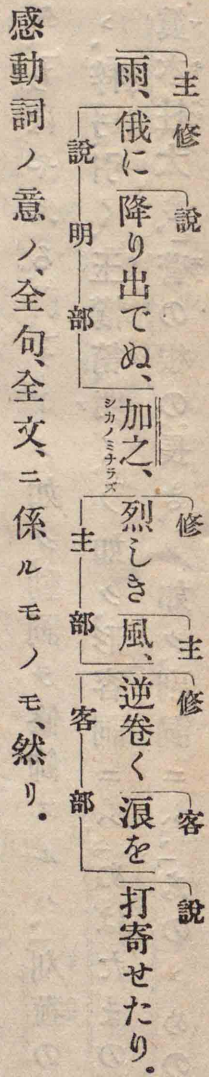 主 修 説 修 主 修 客 説
雨、俄に降り出でぬ、加之、烈しき風、逆巻く浪を打寄せたり。
シカノミナラズ
説明部 主部 客部
感動詞ノ意ノ、全句、全文、ニ係ルモノモ、然リ。